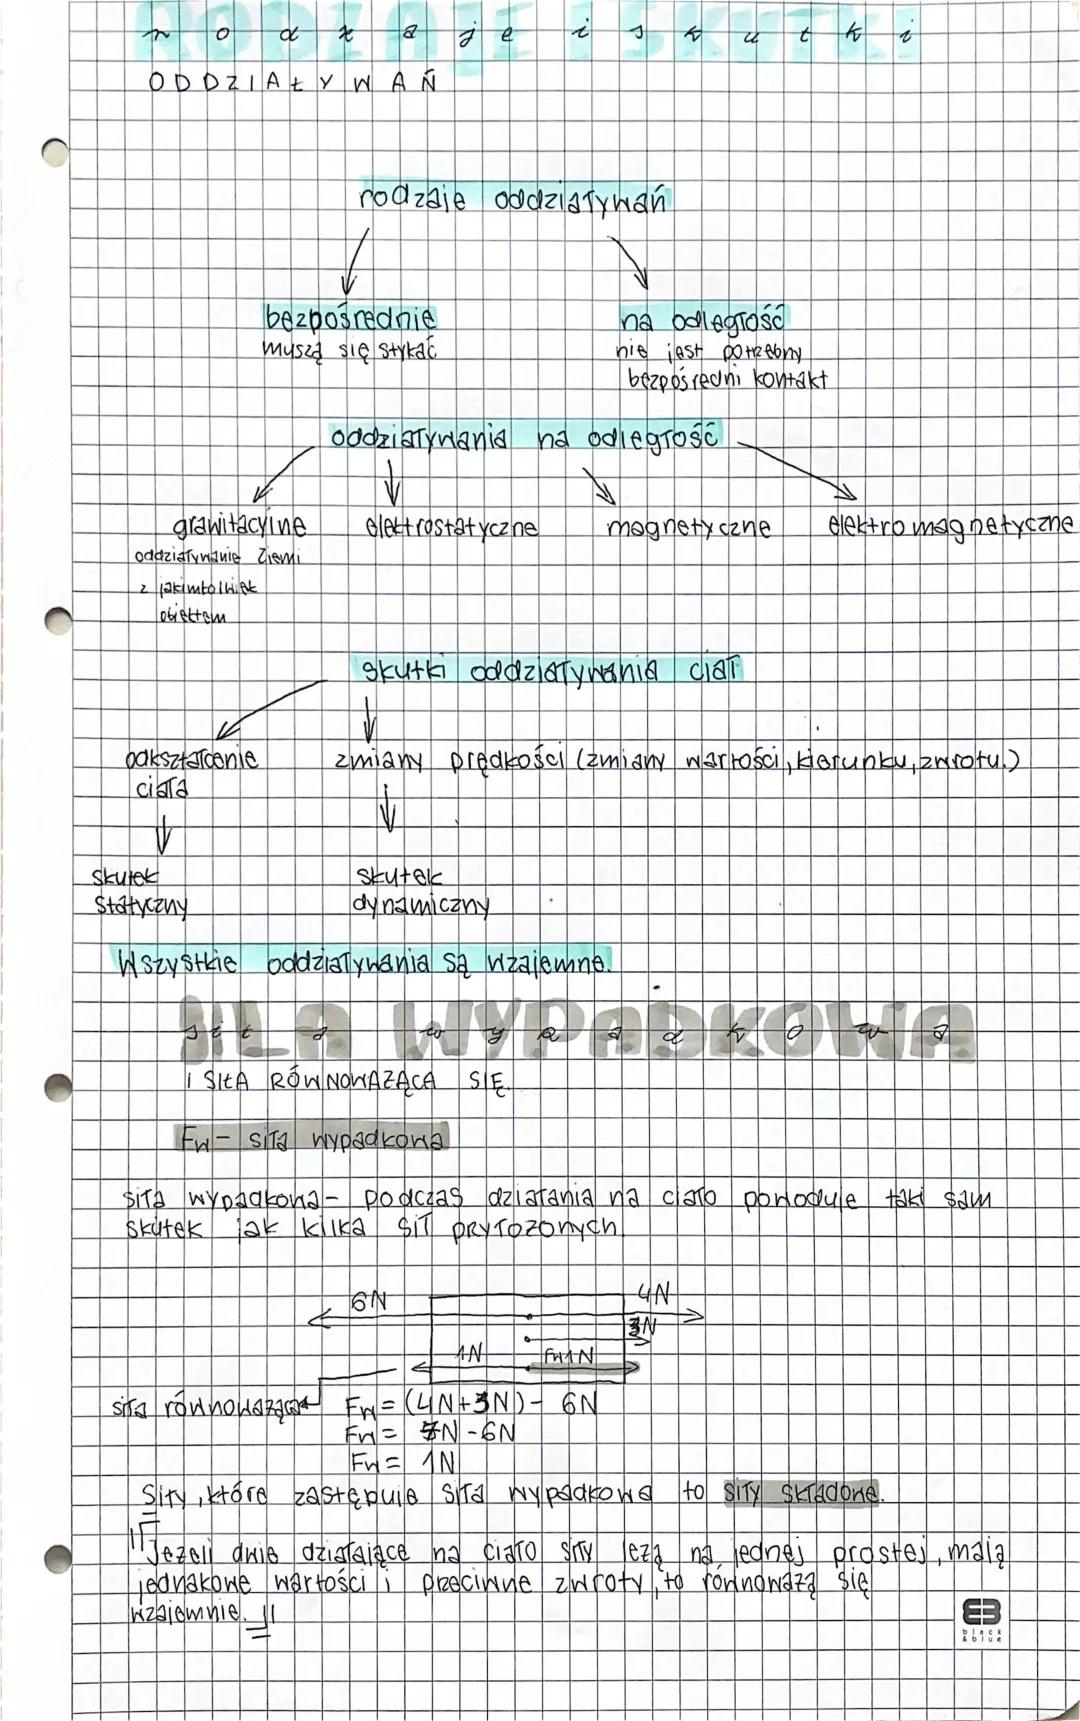 rodzaje i skutki
ODDZIAŁYWAŃ
rodzaje oddziaływań
bezpośrednie
muszą się stykać
na odległość
nie jest potrzebny
bezpośredni kontakt
oddziaływania na odległość
grawitacyjne
oddziaływanie Ziemi
z jakimkolwiek
obiektem
elektrostatyczne
magnetyczne
elektromagnetyczne
skutki oddziaływania ciał
odkształcenie
ciała
zmiany prędkości (zmiany wartości, kierunku, zwrotu.)
skutek
statyczny
skutek
dynamiczny
Wszystkie oddziaływania są wzajemne.
siła wypadkowa
i SIŁA RÓWNOWAŻĄCA SIĘ
Fw - siła wypadkowa
siła wypadkowa - podczas działania na ciało powoduje taki sam
skutek jak kilka sił pryłożonych
6N
4N
3N
1N
Fw1N
siła równoważąca
Fw = (4N+3N) - 6N
Fw = 7N - 6N
Fw = 1N
Siły, które zastępuje siła wypadkowa to siły składone.
"Jeżeli dwie działające na ciało siły leżą na jednej prostej, mają
jednakowe wartości i przeciwne zwroty, to równoważą się
wzajemnie."
black
&blue